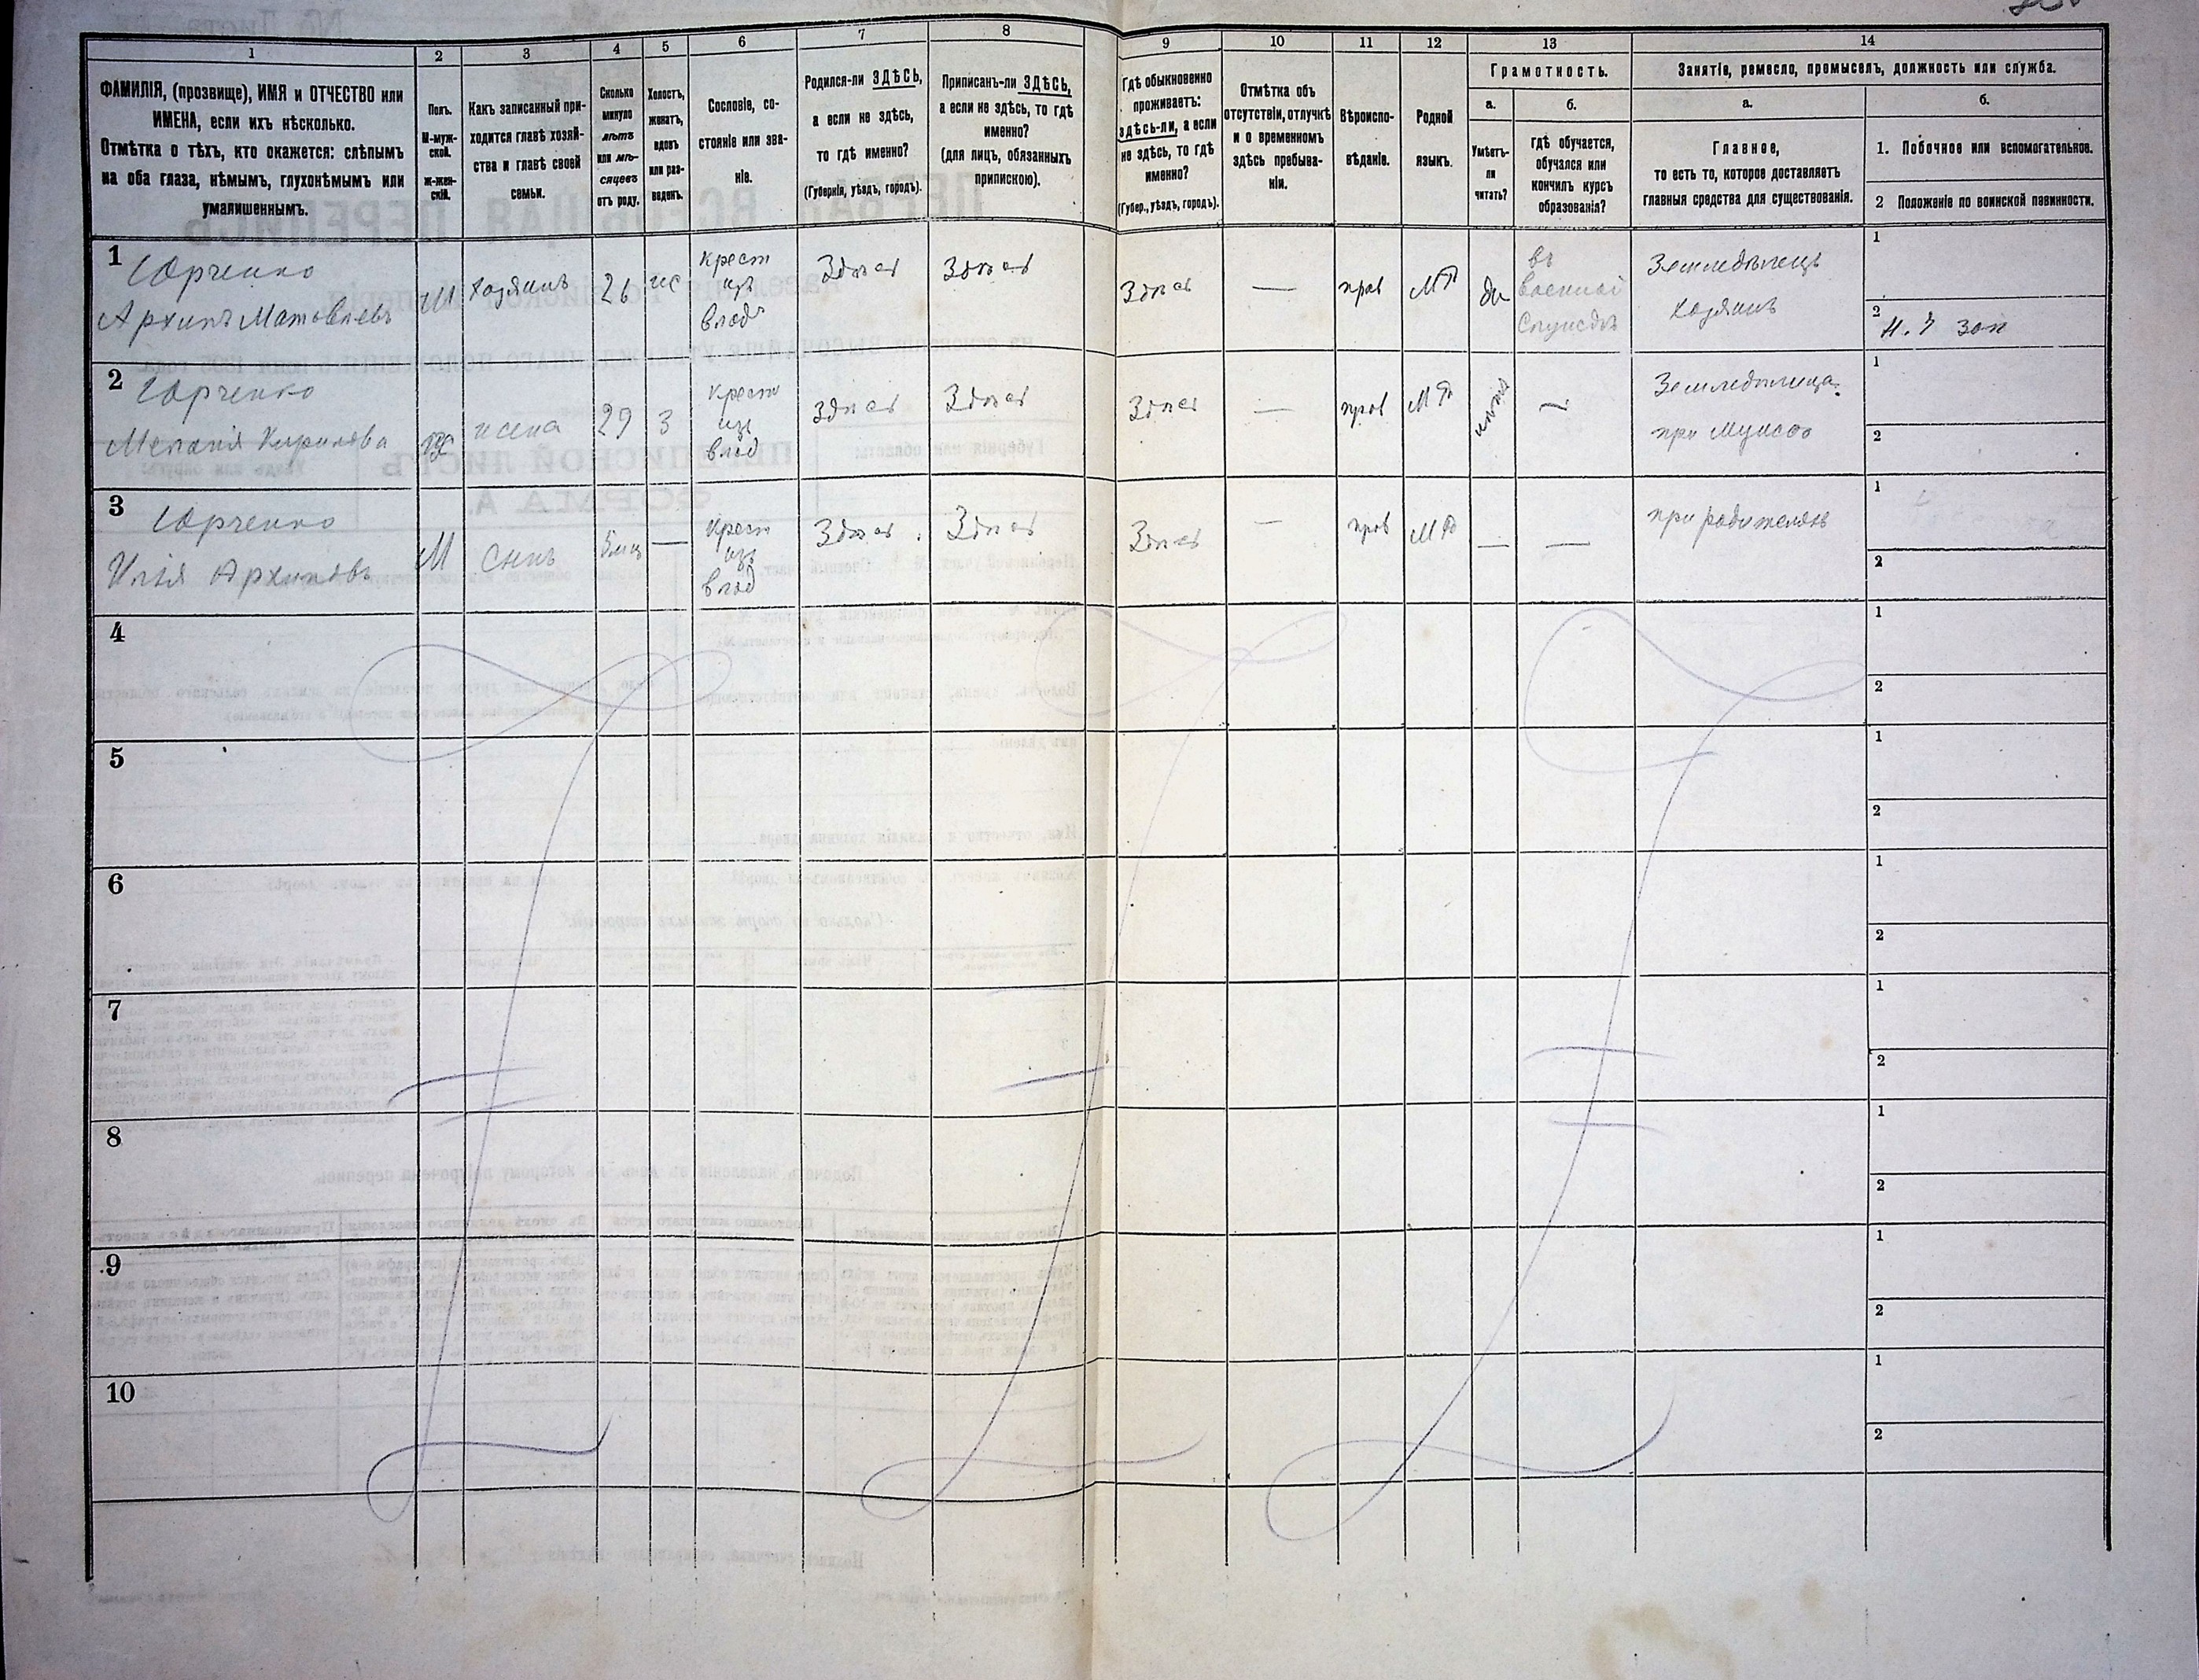 1 2 3 4 5 6 7 8 9 10 11 12 13 14
ФАМИЛІЯ, (прозвище), ИМЯ и ОТЧЕСТВО или
ИМЕНА, если ихъ нѣсколько.
Отмѣтка о тѣхъ, кто окажется: слѣпымъ
на оба глаза, нѣмымъ, глухонѣмымъ или
умалишеннымъ.
Полъ.
М-муж-
ской.
ж-жен-
скій.
Какъ записанный при-
ходится главѣ хозяй-
ства и главѣ своей
семьи.
Сколько
минуло
лѣтъ
или мѣ-
сяцевъ
отъ роду.
Холостъ,
женатъ,
вдовъ
или раз-
веденъ.
Сословіе, со-
стояніе или зва-
ніе.
Родился-ли ЗДѢСЬ,
а если не здѣсь,
то гдѣ именно?
(Губернія, уѣздъ, городъ).
Приписанъ-ли ЗДѢСЬ,
а если не здѣсь, то гдѣ
именно?
(для лицъ, обязанныхъ
припискою).
Гдѣ обыкновенно
проживаетъ:
здѣсь-ли, а если
не здѣсь, то гдѣ
именно?
(Губер., уѣздъ, городъ).
Отмѣтка объ
отсутствіи, отлучкѣ
и о временномъ
здѣсь пребыва-
ніи.
Вѣроиспо-
вѣданіе.
Родной
языкъ.
Грамотность.
а.
Умѣетъ-
ли
читать?
б.
гдѣ обучается,
обучался или
кончилъ курсъ
образованія?
Занятіе, ремесло, промыселъ, должность или служба.
а.
Главное,
то есть то, которое доставляетъ
главныя средства для существованія.
б.
1. Побочное или вспомогательное.
2 Положеніе по воинской повинности.
1 Юрченко
Архипъ Матовѣевъ
М
хозяинъ
26
ж
Крест
изъ
влад
Здѣсь
Здѣсь
Здѣсь
—
прав
МР
да
въ
военной
Службѣ
Земледѣлецъ
хозяинъ
1
2
2 Юрченко
Меланія Кирилова
Ж
жена
29
З
Крест
изъ
влад
Здѣсь
Здѣсь
Здѣсь
—
прав
МР
нѣтъ
—
Земледѣлица
при Мужѣ
1
2
3 Юрченко
Илія Архиповъ
М
сынъ
5 мц
—
Крест
изъ
влад
Здѣсь
Здѣсь
Здѣсь
—
прав
МР
—
—
при родителяхъ
1
2
4
1
2
5
1
2
6
1
2
7
1
2
8
1
2
9
1
2
10
1
2